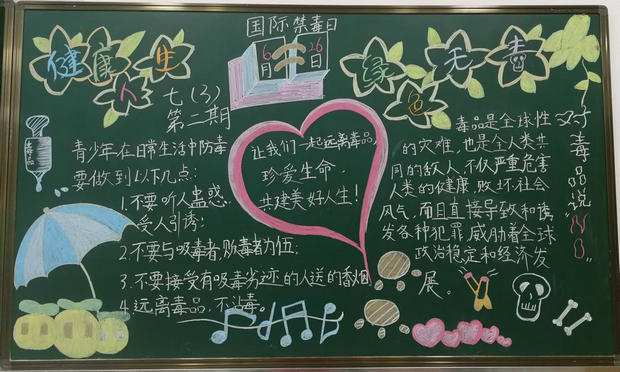 国际禁毒日
6月26日
健康人生
绿色无毒
七(3)
第二期
毒品
青少年在日常生活中防毒
要做到以下几点:
1.不要听人蛊惑,
受人引诱;
2.不要与吸毒者,贩毒者为伍;
3.不要接受有吸毒劣迹的人送的香烟
4.远离毒品,不沾毒。
让我们一起远离毒品,
珍爱生命,
共建美好人生!
毒品是全球性
的灾难,也是全人类共
同的敌人,不仅严重危害
人类的健康,败坏社会
风气,而且直接导致和诱
发各种犯罪,威胁着全球
政治稳定和经济发
展。
对毒品说"NO"